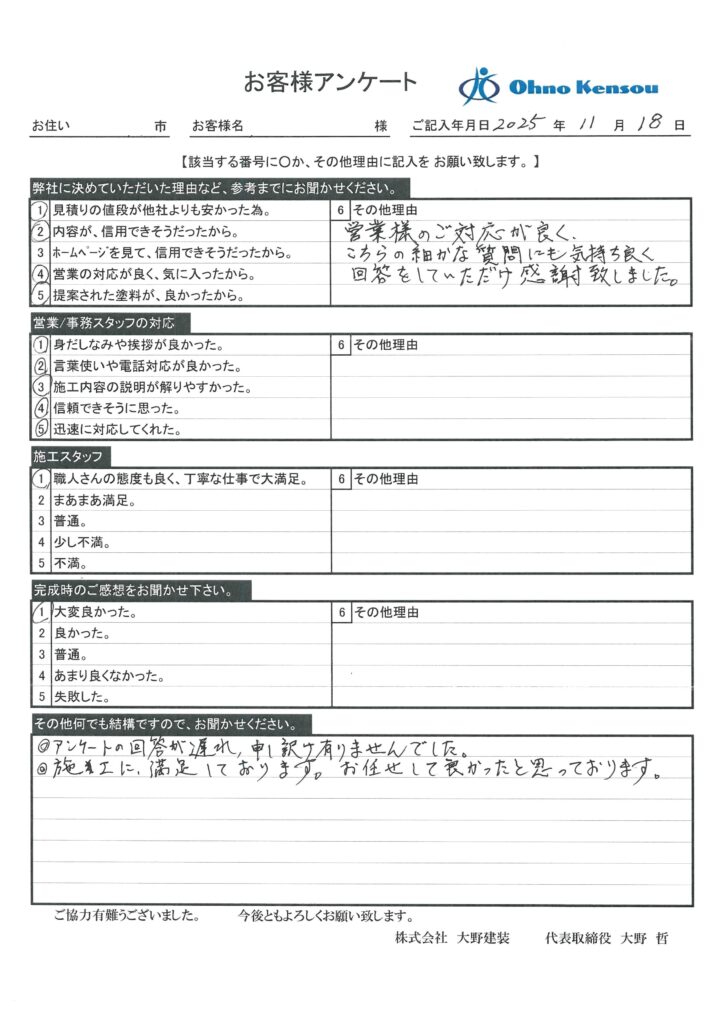 お客様アンケート
Ohno Kensou
お住い 市 お客様名 様 ご記入年月日 2025 年 11 月 18 日
【該当する番号に〇か、その他理由に記入を お願い致します。】
弊社に決めていただいた理由など、参考までにお聞かせください。
1 見積りの値段が他社よりも安かった為。
2 内容が、信用できそうだったから。
3 ホームページを見て、信用できそうだったから。
4 営業の対応が良く、気に入ったから。
5 提案された塗料が、良かったから。
6 その他理由
営業様のご対応が良く、
こちらの細かな質問にも気持ち良く
回答をしていただけ感謝致しました。
営業/事務スタッフの対応
1 身だしなみや挨拶が良かった。
2 言葉使いや電話対応が良かった。
3 施工内容の説明が解りやすかった。
4 信頼できそうに思った。
5 迅速に対応してくれた。
6 その他理由
施工スタッフ
1 職人さんの態度も良く、丁寧な仕事で大満足。
2 まあまあ満足。
3 普通。
4 少し不満。
5 不満。
6 その他理由
完成時のご感想をお聞かせ下さい。
1 大変良かった。
2 良かった。
3 普通。
4 あまり良くなかった。
5 失敗した。
6 その他理由
その他何でも結構ですので、お聞かせください。
◎アンケートの回答が遅れ、申し訳け有りませんでした。
◎施工に、満足しております。お任せして良かったと思っております。
ご協力有難うございました。 今後ともよろしくお願い致します。
株式会社 大野建装 代表取締役 大野 哲